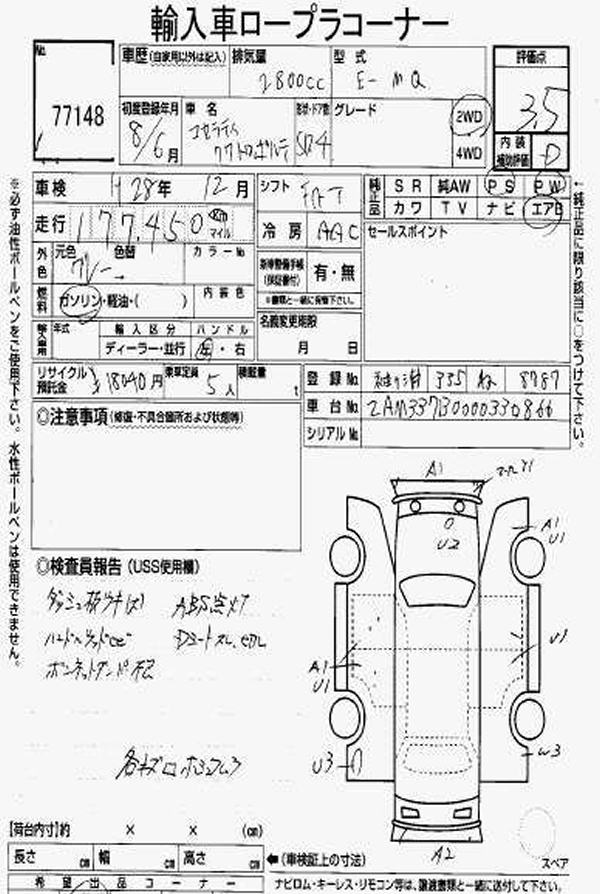 輸入車ロープラコーナー
No.
77148
車歴(自家用以外は記入)
排気量
2800cc
型式
E-MQ
評価点
3.5
初度登録年月
8/6月
車名
マセラティ
クワトロポルテ
形状・ドア数
SD4
グレード
2WD
4WD
内装補助評価
D
車検
H28年 12月
シフト
FAT
純正品
SR 純AW PS PW
カワ TV ナビ エアB
走行
177,450 Km マイル
冷房
AAC
セールスポイント
外色
元色
グレー
色替
カラーNo
新車整備手帳(保証書付)
有・無
※書類と一緒に保管下さい。
燃料
ガソリン・軽油・( )
内装色
輸入車用
年式
輸入区分
ハンドル
ディーラー・並行
左・右
名義変更期限
月 日
リサイクル預託金
¥18040円
乗車定員
5人
積載量
t
登録No.
335 ね 8787
車台No.
ZAM337B0000330866
シリアルNo.
◎注意事項(修復・不具合箇所および状態等)
◎検査員報告(USS使用欄)
ABS点灯
各キズ
A1
U2
A1
U1
U1
A1
U1
U3
W3
A2
スペア
※必ず油性ボールペンをご使用下さい。水性ボールペンは使用できません。
←純正品に限り該当に○をつけて下さい。
【荷台内寸】約 × × (cm)
長さ cm 幅 cm 高さ cm
←(車検証上の寸法)
希望出品コーナー
ナビロム・キーレス・リモコン等は、譲渡書類と一緒に送付して下さい。